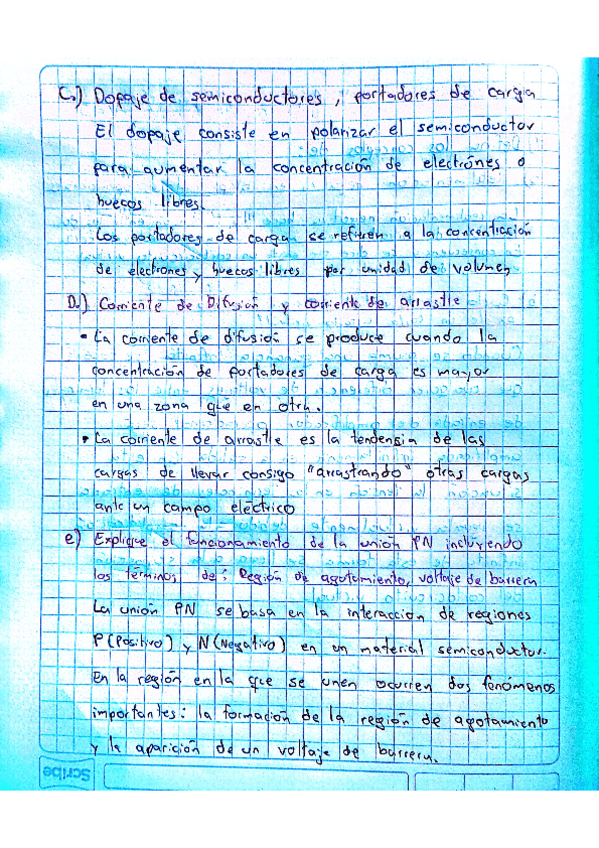 C.) Dopaje de semiconductores, portadores de carga
El dopaje consiste en polarizar el semiconductor
para aumentar la concentración de electrónes o
huecos libres.
Los portadores de carga se refieren a la concentración
de electrones y huecos libres por unidad de volumen
D.) Corriente de Difusión y corriente de arrastre
• La corriente de difusión se produce cuando la
concentración de portadores de carga es mayor
en una zona que en otra.
• La corriente de arrastre es la tendensia de las
cargas de llevar consigo "arrastrando" otras cargas
ante un campo eléctrico
e) Explique el funcionamiento de la unión PN incluyendo
los términos de: Región de agotamiento, voltaje de barrera
La unión PN se basa en la interacción de regiones
P (Positivo) y N (Negativo) en un material semiconductor.
En la región en la que se unen ocurren dos fenómenos
importantes: la formación de la región de agotamiento
y la aparición de un voltaje de barrera.
Scribe